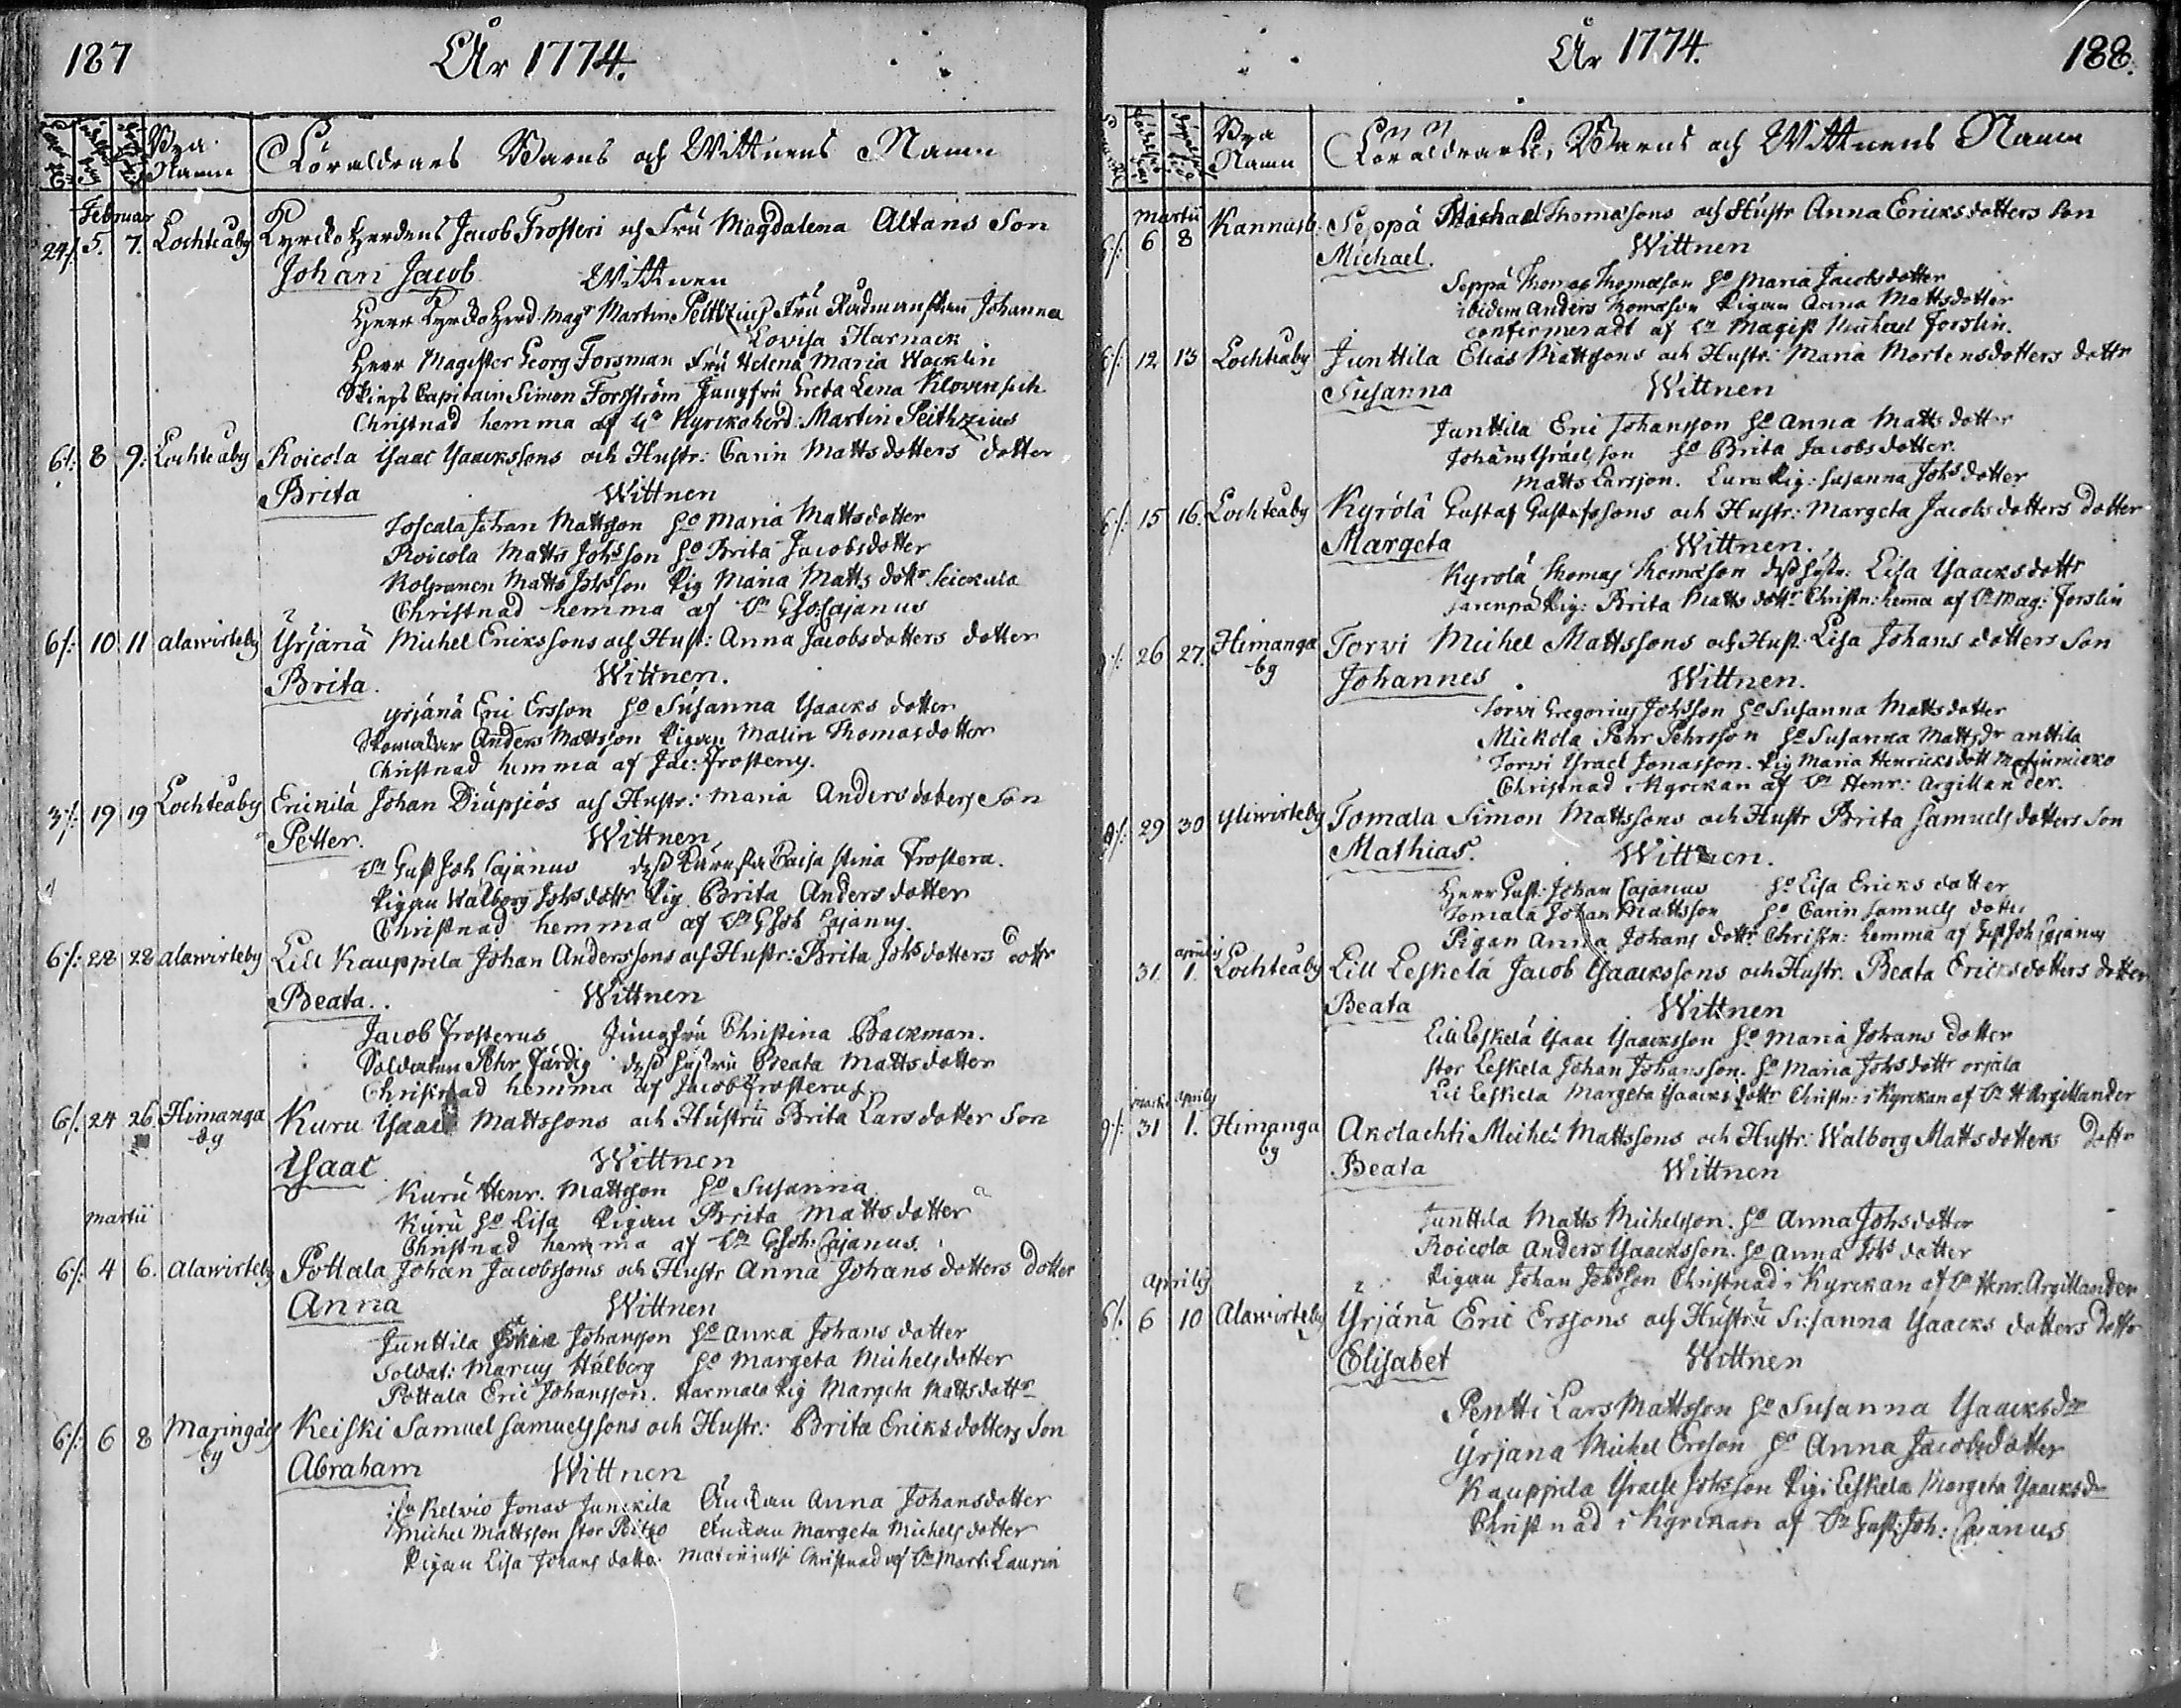 187 År 1774.
Bya Namn Föräldrars Barns och Wittnens Namn
Februar
24/: 5. 7. Lochteåby Kyrckoherdens Jacob Frosteri och Fru Magdalena Altans Son
Johan Jacob Wittnen
Herr Kyrckoherd. Magr Martin Peithzius Fru Rådmanskan Johanna
Lovisa Harnack
Herr Magister Georg Forsman Fru Helena Maria Wacklin
Skieps Capitain Simon Forsström Jungfru Greta Lena
Christnad hemma af Hr Kyrckoherd: Martin Peithzius
6/: 8 9: Lochteåby Roicola Ysaac Ysaackssons och Hustr: Carin Mattsdotters dotter
Brita Wittnen
Toscala Johan Mattsson Ho Maria Mattsdotter
Roicola Matts Johsson Ho Brita Jacobsdotter
Matts Johsson Pig Maria Matts dottr
Christnad hemma af Hr G Joh Cajanus
6/: 10 11 alawirteby Yrjänä Michel Erickssons och Hust: Anna Jacobsdotters dotter
Brita. Wittnen.
yrjänä Eric Ersson Ho Susanna Ysaacks dotter
Skomakar Anders Mattsson Pigan Malin Thomasdotter
Christnad hemma af Jac: Frosterus.
3/: 19 19 Lochteåby Erickilä Johan Diupsiös och Hustr: Maria Andersdoters Son
Petter. Wittnen
Hr Gust Joh Cajanus dess Käresta Caisa Stina Frostera.
Pigan Walborg Johs dottr Pig. Brita Andersdotter
Christnad hemma af Hr G Joh Cajanus.
6/: 28 28 alawirteby Lill Kauppila Johan Anderssons och Hustr: Brita Johsdotters dottr
Beata.. Wittnen
Jacob Frosterus Jungfru Christina Backman.
Soldaten Pehr Färdig dess hustru Beata Mattsdotter
Christnad hemma af Jacob Frosterus.
6/: 24 26. Himanga by Kuru Ysaac Mattssons och Hustru Brita Larsdotter Son
Ysaac. Wittnen
Kuru Henr. Mattsson Ho Susanna
Martii
Kuru Ho Lisa Pigan Brita Mattsdotter
Christnad hemma af Hr G Joh: Cajanus.
6/: 4 6. Alawirteby Pottala Johan Jacobssons och Hustr Anna Johans dotters dotter
Anna Wittnen
Junttila Johansson Ho Anna Johans dotter
Soldat: Marcus Hålberg Ho Margeta Michelsdotter
Pottala Eric Johansson. Pig Margeta Mattsdottr
6/: 6 8 Maringais by Keiski Samuel Samuelssons och Hustr: Brita Ericksdotters Son
Abraham Wittnen
Kelvio Jonas Junckila Änckan Anna Johansdotter
Michel Mattsson stor Änckan Margeta Michelsdotter
Pigan Lisa Johans dotter Christnad af Hr Mart: Laurin
År 1774. 188.
Bya Namn Föräldrars, Barns och Wittnens Namn
Martii
6/: 6 8 Kannusb. Seppä Michael Thomassons och Hustr Anna Ericksdotters Son
Michael. Wittnen
Seppä Thomas Thomasson Ho Maria Jacobsdotter
ibidem Anders Thomasson Pigan Anna Mattsdotter
confirmeradt af Hr Magist Michael Forslin.
6/: 12 13 Lochteåby Junttila Elias Mattssons och Hustr: Maria Mortensdotters dottr
Susanna Wittnen
Junttila Eric Johansson Ho Anna Mattsdotter
Johan Ysraelsson Ho Brita Jacobsdotter.
Matts Larsson. Pig: Susanna Johs dotter
6/: 15 16. Lochteåby Kyrölä Gustaf Gustafssons och Hustr: Margeta Jacobsdotters dotter
Margeta Wittnen.
Kyrölä Thomas Thomasson dess hustr: Lisa Ysaacksdottr
Pig: Brita Matts dottr Christn: hemma af Hr Mag: Forslin
26 27. Himanga by Torvi Michel Mattssons och Hust. Lisa Johans dotters Son
Johannes. Wittnen.
Torvi Gregorius Johsson Ho Susanna Mattsdotter
Mickola Pehr Pehrsson Ho Susanna Mattsdr anttila
Torvi Ysrael Jonasson. Pig Maria Henricksdottr
Christnad i Kyrckan af Hr Henr: Argillander.
9/: 29 30 Yliwirteby Tomala Simon Mattssons och Hustr Brita Samuelsdotters Son
Mathias. Wittnen.
Herr Gust: Johan Cajanus Ho Lisa Ericks dotter
Tomala Johan Mattsson Ho Carin Samuels dotter
Pigan Anna Johans dottr Christn: hemma af Gust Joh Cajanus
aprilis
31. 1. Lochteåby Lill Leskelä Jacob Ysaackssons och Hustr. Beata Ericksdotters dotter
Beata Wittnen
Lill Leskelä Ysaac Ysaacksson Ho Maria Johans dotter
stor Leskela Johan Johansson. Ho Maria Johsdottr orjala
Lil Leskela Margeta Ysaacksdottr Christn: i Kyrckan af Hr H Argillander
Martii Aprilis
9/: 31 1. Himanga by Akolachti Michel Mattssons och Hustr: Walborg Mattsdotters dottr
Beata Wittnen
Junttila Matts Michelsson. Ho Anna Johsdotter
Roicola Anders Ysaacksson. Ho Anna Johs dotter
Aprilis
Pigan Johan Johsson Christnad i Kyrckan af Hr Henr. Argillander
6/: 6 10 Alawirteby Yrjänä Eric Erssons och Hustru Susanna Ysaacks dotters dottr
Elisabet Wittnen
Pentti Lars Mattsson Ho Susanna Ysaacksdr
Yrjana Michel Ersson Ho Anna Jacobsdotter
Kauppila Ysrael Johsson Pig: Leskela Margeta Ysaacksdr
Christnad i Kyrckan af Hr Gust: Joh: Cajanus